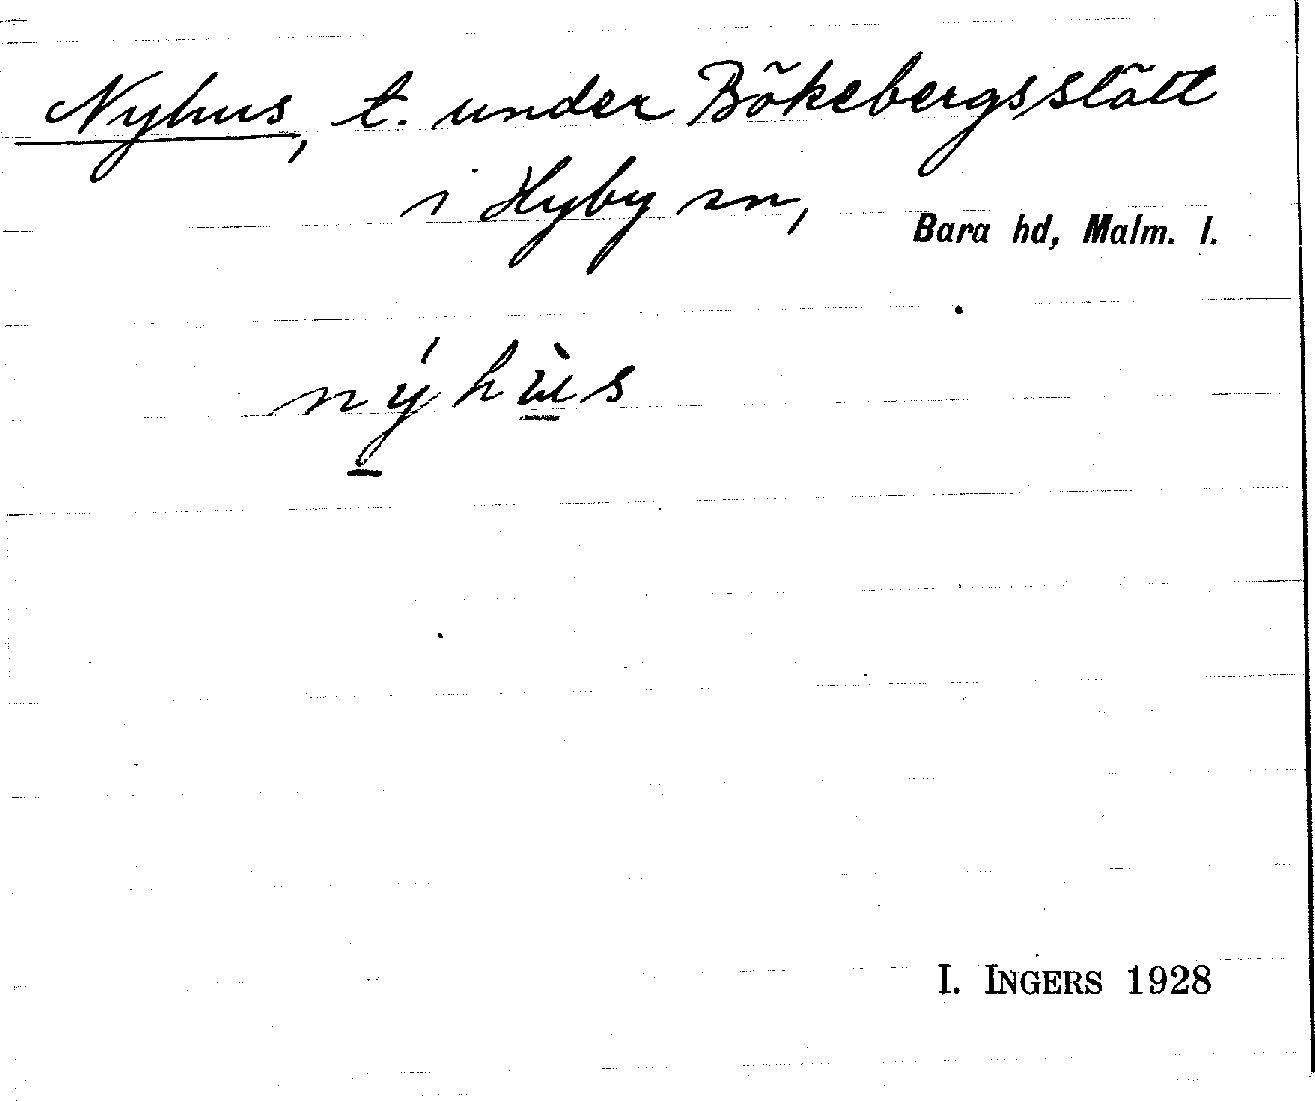 Nyhus, t. under Bökebergsslätt
i Hyby sn,
Bara hd, Malm. l.
nýhùs
I. INGERS 1928